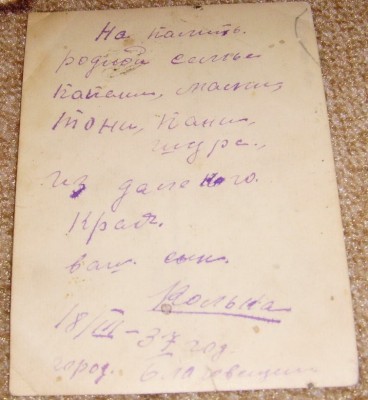 На память.
родной семье
папаши, мамаши,
Тони, Пани,
Шура.,
из далекого.
Края.
ваш. сын.
Колька
18/III-37 год.
город.